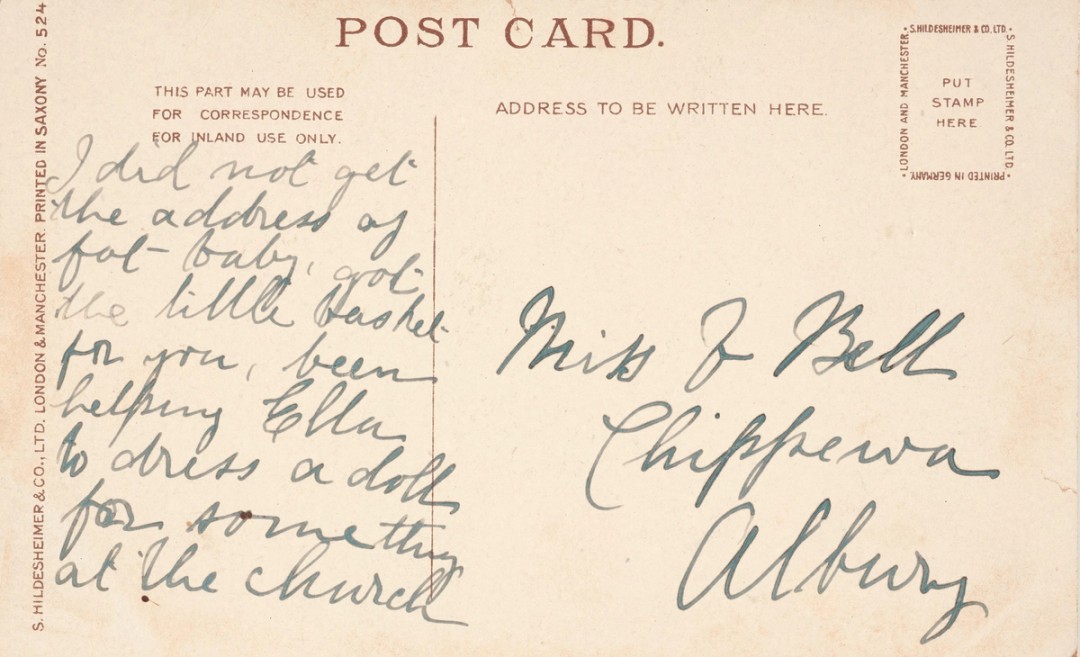 POST CARD.
THIS PART MAY BE USED
FOR CORRESPONDENCE
FOR INLAND USE ONLY.
ADDRESS TO BE WRITTEN HERE.
S. HILDESHEIMER & CO. LTD.
S. HILDESHEIMER & CO. LTD.
PRINTED IN GERMANY.
LONDON AND MANCHESTER.
PUT
STAMP
HERE
S. HILDESHEIMER & CO., LTD. LONDON & MANCHESTER. PRINTED IN SAXONY No. 524
I did not get
the address of
fat baby, got
the little basket
for you, been
helping Ella
to dress a doll
for something
at the church
Miss J Bell
Chippewa
Albury